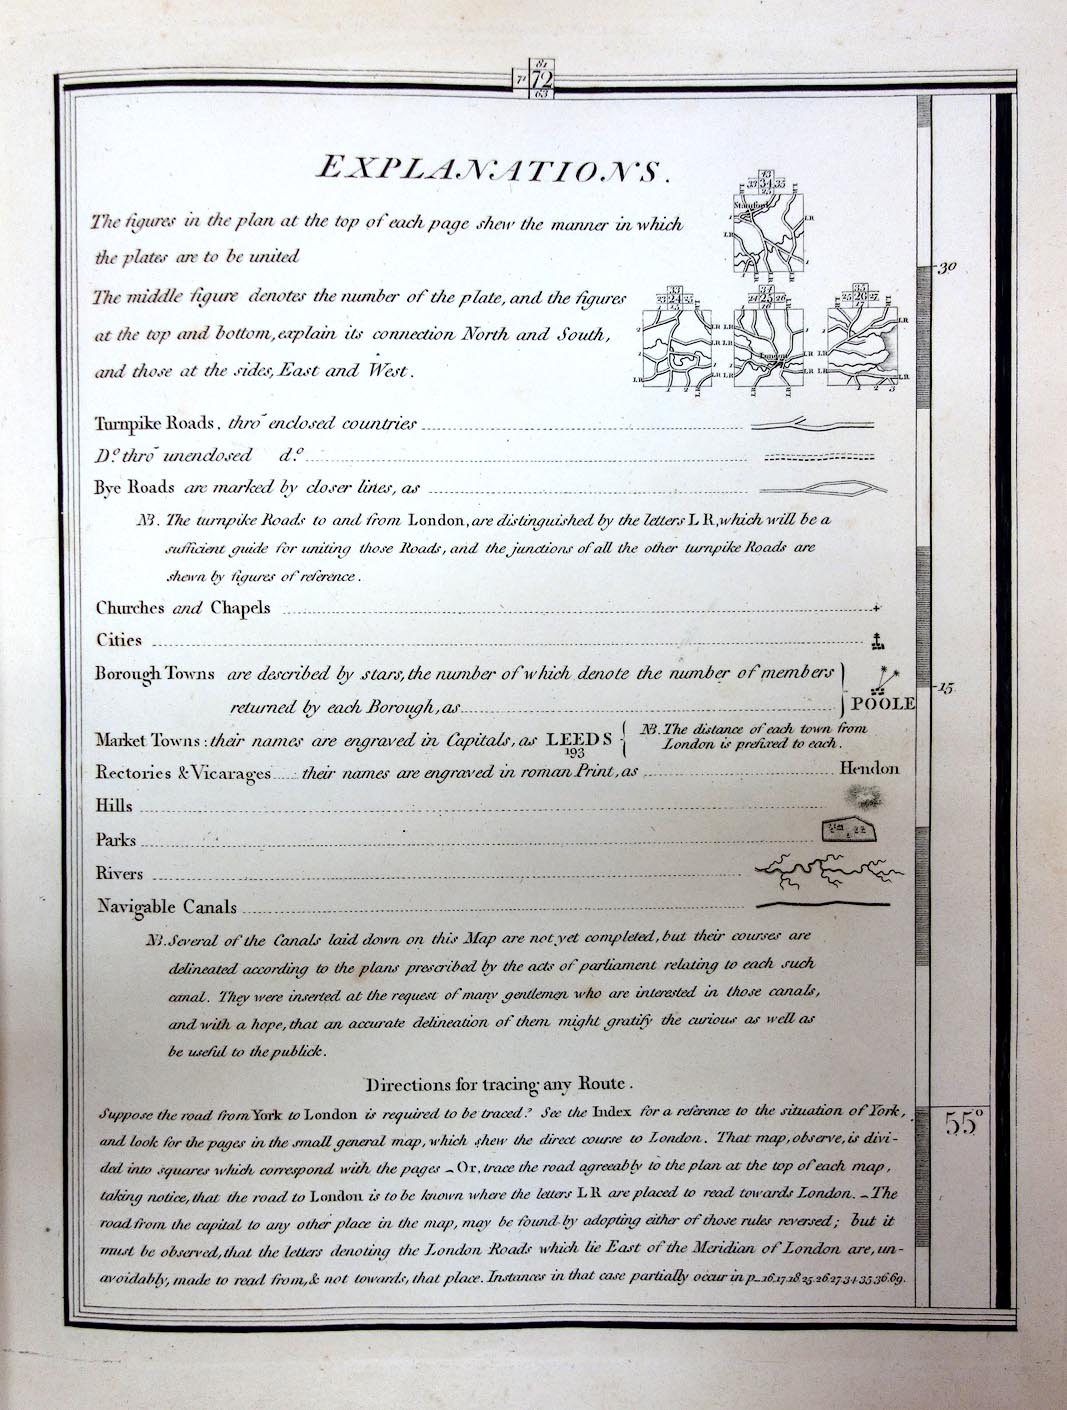 81
71 72
63
EXPLANATIONS.
The figures in the plan at the top of each page shew the manner in which
the plates are to be united
The middle figure denotes the number of the plate, and the figures
at the top and bottom, explain its connection North and South,
and those at the sides, East and West.
43
33 34 35
25
Stamford
33
23 24 25
15
34
24 25 26
16
London
35
25 26 27
17
Turnpike Roads, thro' enclosed countries
Do. thro' unenclosed do.
Bye Roads are marked by closer lines, as
NB. The turnpike Roads to and from London, are distinguished by the letters L R, which will be a
sufficient guide for uniting those Roads, and the junctions of all the other turnpike Roads are
shewn by figures of reference.
Churches and Chapels
Cities
Borough Towns are described by stars, the number of which denote the number of members
returned by each Borough, as POOLE
Market Towns: their names are engraved in Capitals, as LEEDS
193
NB. The distance of each town from
London is prefixed to each.
Rectories & Vicarages their names are engraved in roman Print, as Hendon
Hills
Parks
Rivers
Navigable Canals
NB. Several of the Canals laid down on this Map are not yet completed, but their courses are
delineated according to the plans prescribed by the acts of parliament relating to each such
canal. They were inserted at the request of many gentlemen who are interested in those canals,
and with a hope, that an accurate delineation of them might gratify the curious as well as
be useful to the publick.
Directions for tracing any Route.
Suppose the road from York to London is required to be traced? See the Index for a reference to the situation of York,
and look for the pages in the small general map, which shew the direct course to London. That map, observe, is divi-
ded into squares which correspond with the pages – Or, trace the road agreeably to the plan at the top of each map,
taking notice, that the road to London is to be known where the letters L R are placed to read towards London. – The
road from the capital to any other place in the map, may be found by adopting either of those rules reversed; but it
must be observed, that the letters denoting the London Roads which lie East of the Meridian of London are, un-
avoidably, made to read from, & not towards, that place. Instances in that case partially occur in p. 16.17.18.25.26.27.34.35.36.69.
30
15
55°